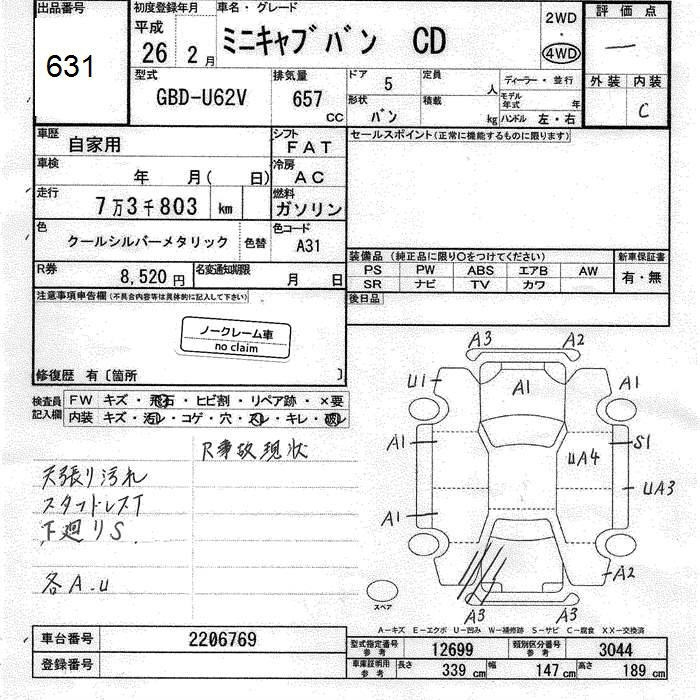 出品番号
631
初度登録年月
平成
26 2 月
車名・グレード
ミニキャブバン CD
2WD
・
4WD
評価点
―
外装 内装
C
型式
GBD-U62V
排気量
657
CC
ドア
5
定員
人
形状
バン
積載
kg
ディーラー・並行
モデル年式 年
ハンドル 左・右
車歴
自家用
シフト
FAT
車検
年 月( 日)
冷房
AC
走行
7万3千803 km
燃料
ガソリン
色
クールシルバーメタリック
色替
色コード
A31
R券
8,520円
名変通知期限
月 日
セールスポイント(正常に機能するものに限ります)
装備品 (純正品に限り○をつけてください)
PS PW ABS エアB AW
SR ナビ TV カワ
新車保証書
有・無
後日品
注意事項申告欄(不具合内容等は具体的に記入して下さい)
ノークレーム車
no claim
修復歴 有〔箇所 〕
検査員記入欄
FW キズ・飛石・ヒビ割・リペア跡・×要
内装 キズ・汚レ・コゲ・穴・スレ・キレ・破レ
R事故現状
天張り汚れ
スタッドレスT
下廻りS
各A.U
A3 A2
U1 A1 A1
A1 S1
UA4
UA3
A1
A2
スペア
A3 A3
A−キズ E−エクボ U−凹み W−補修跡 S−サビ C−腐食 XX−交換済
車台番号 2206769
登録番号
型式指定番号 参考 12699
類別区分番号 参考 3044
車庫証明用 参考
長さ 339 cm 幅 147 cm 高さ 189 cm